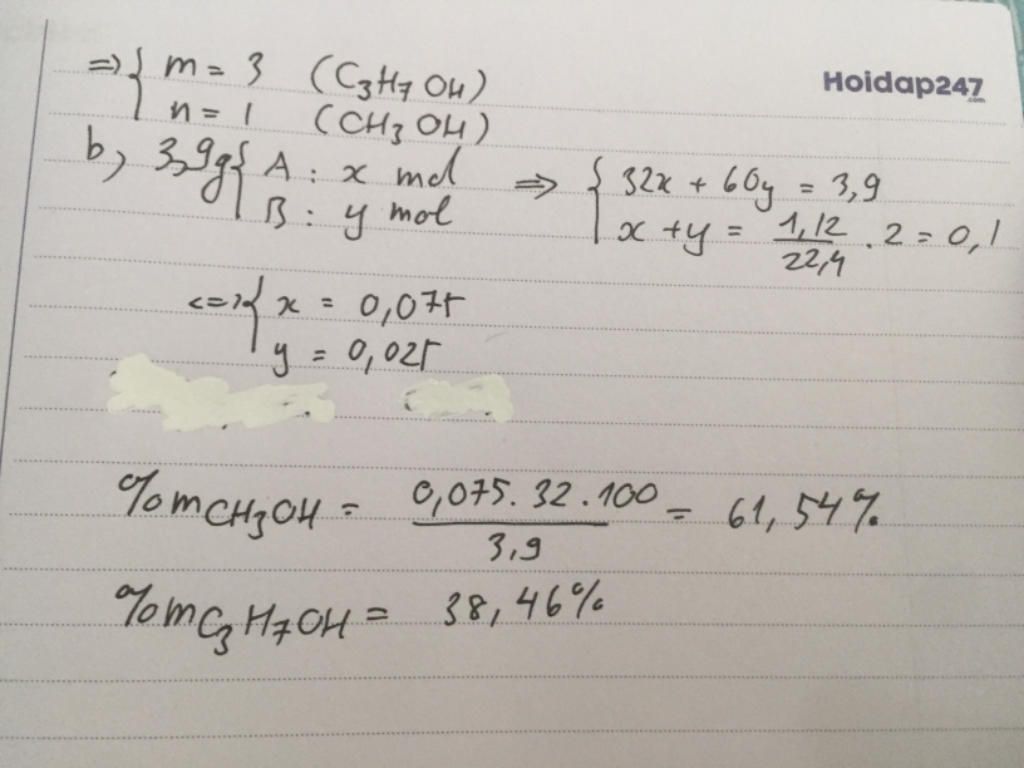 => { m = 3 (C₃H₇OH)
n = 1 (CH₃OH)
Hoidap247
.com
b, 3,9g { A : x mol => { 32x + 60y = 3,9
B : y mol x + y = 1,12/22,4 . 2 = 0,1
<=> { x = 0,075
y = 0,025
%mCH₃OH = 0,075.32.100/3,9 = 61,54%
%mC₃H₇OH = 38,46%